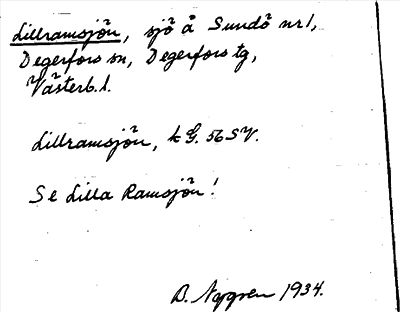 Lillramsjön, sjö å Sundö nr 1,
Degerfors sn, Degerfors tg,
Västerb. l.
Lillramsjön, k G. 56 SV.
Se Lilla Ramsjön!
B. Nygren 1934.